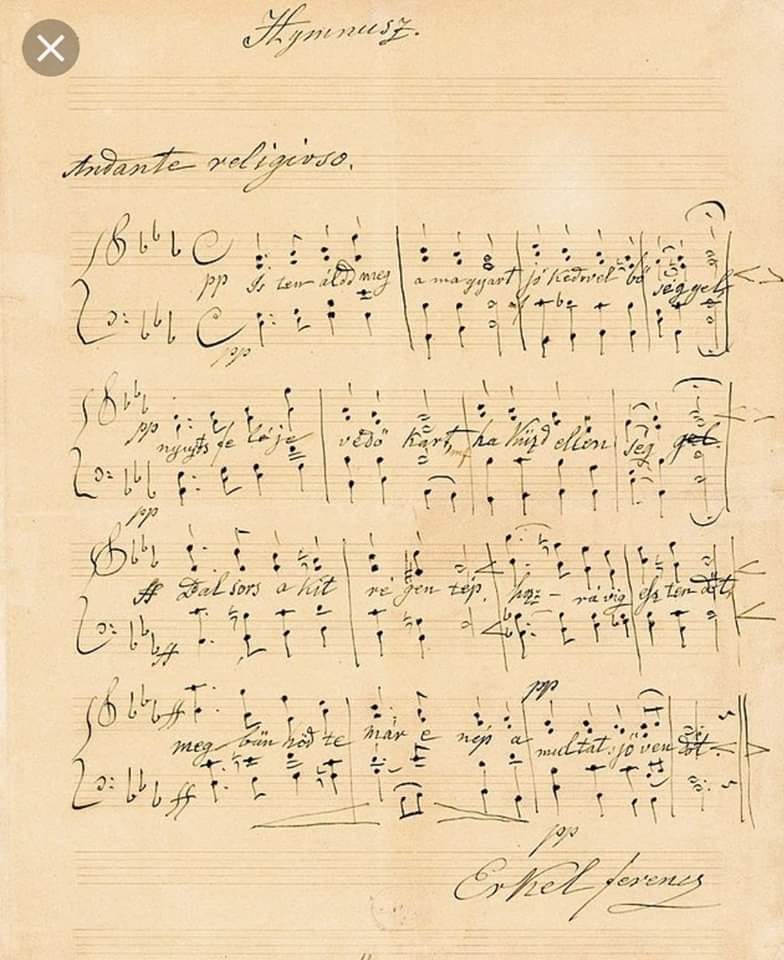 Hymnusz.
Andante religioso.
pp Is ten áldd meg a magyart jó kedvvel bő séggel,
pp
pp nyujts fe lé je védő kart, mf ha küzd ellen ség gel.
pp
ff Bal sors a kit ré gen tép, hoz - rá víg esz ten dőt,
ff
pp
ff meg bűn hőd te már e nép a multat s jöven dőt.
ff
pp
Erkel ferencz